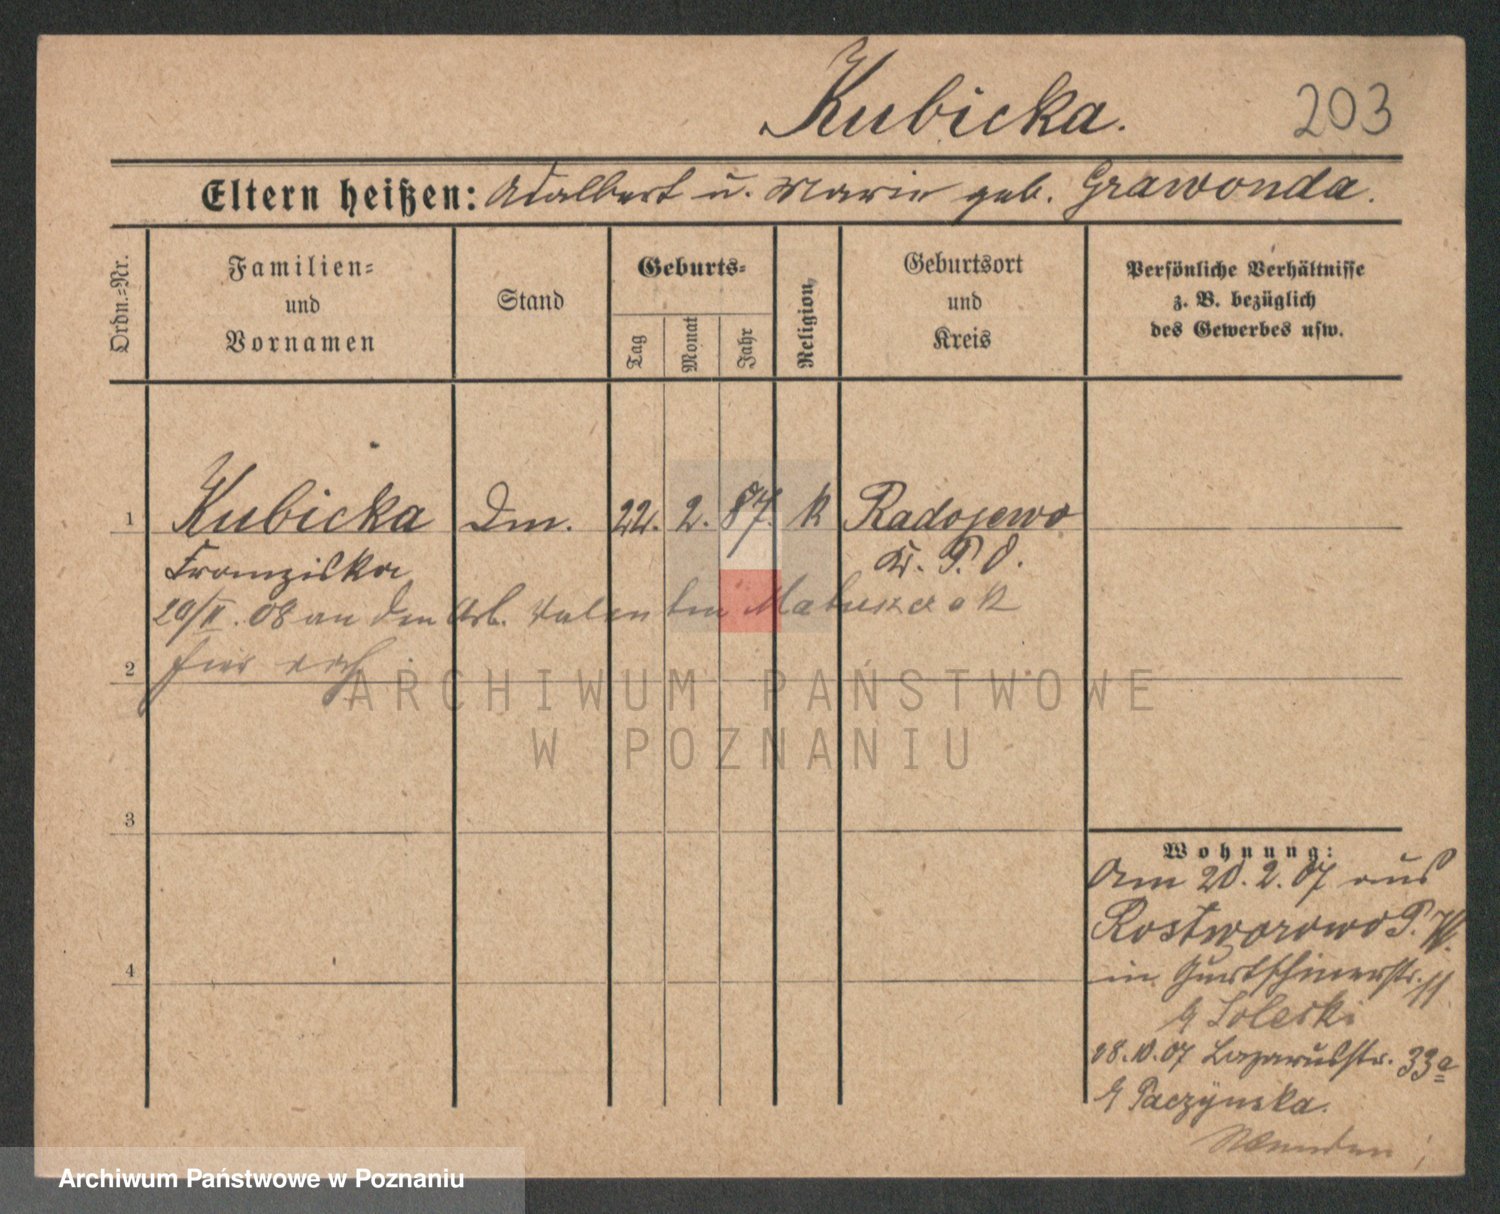 Kubicka.
203
Eltern heißen: Adalbert u. Marie geb. Grawonda.
Ordn.-Nr.
Familien- und Vornamen
Stand
Geburts-
Tag
Monat
Jahr
Religion
Geburtsort und Kreis
Persönliche Verhältnisse
z. B. bezüglich
des Gewerbes usw.
1 Kubicka Dm. 22. 2. 87. k Radojewo
Franziska Kr. P. O.
20/II. 08 an den Arb. Valentin Matuszczak
2
ARCHIWUM PAŃSTWOWE
W POZNANIU
3
Wohnung:
Am 20. 2. 07 aus
Rostworowo P. W.
in Gurtschinerstr. 11
Soleski
18. 10. 07 Lazarusstr. 33a
Paczynska.
4
Archiwum Państwowe w Poznaniu